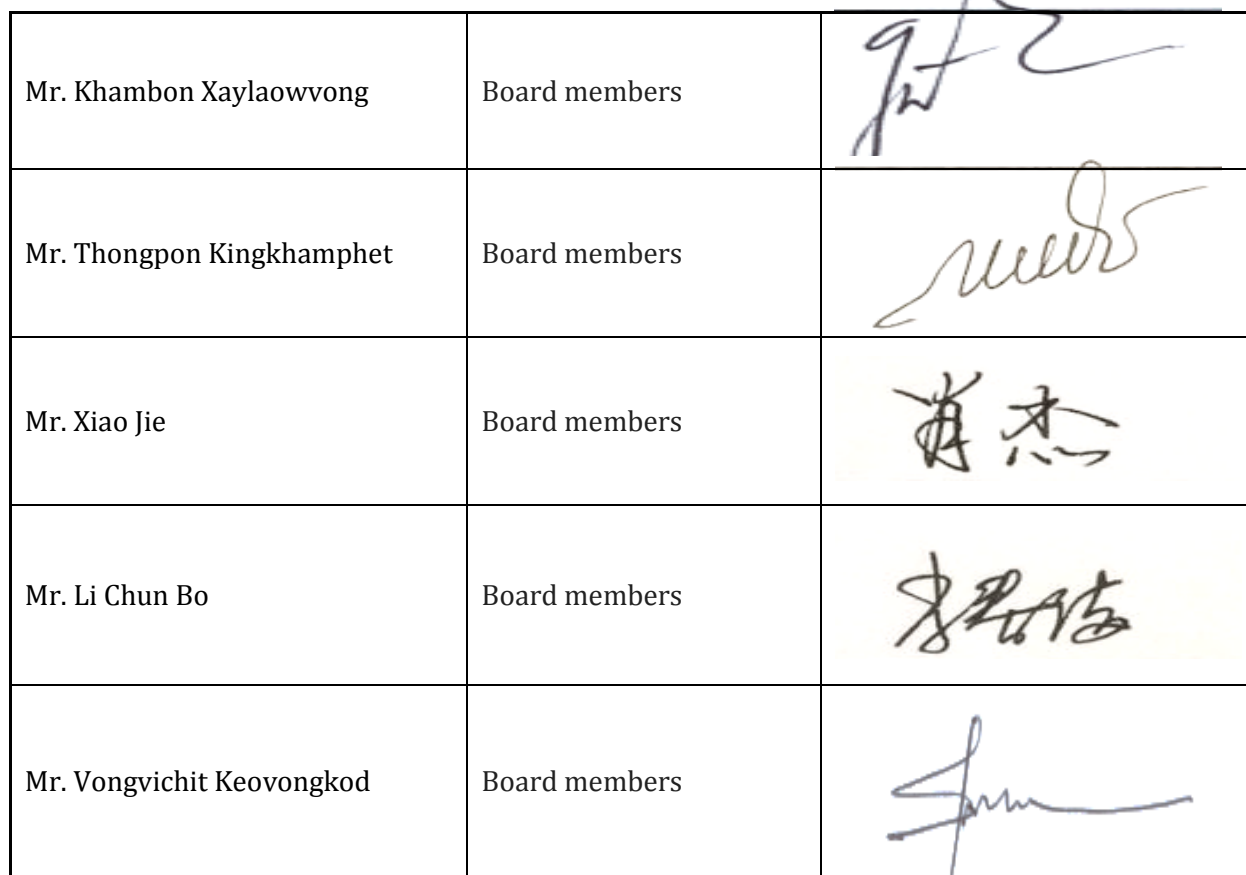 Mr. Khambon Xaylaowvong Board members
Mr. Thongpon Kingkhamphet Board members
Mr. Xiao Jie Board members 肖杰
Mr. Li Chun Bo Board members
Mr. Vongvichit Keovongkod Board members